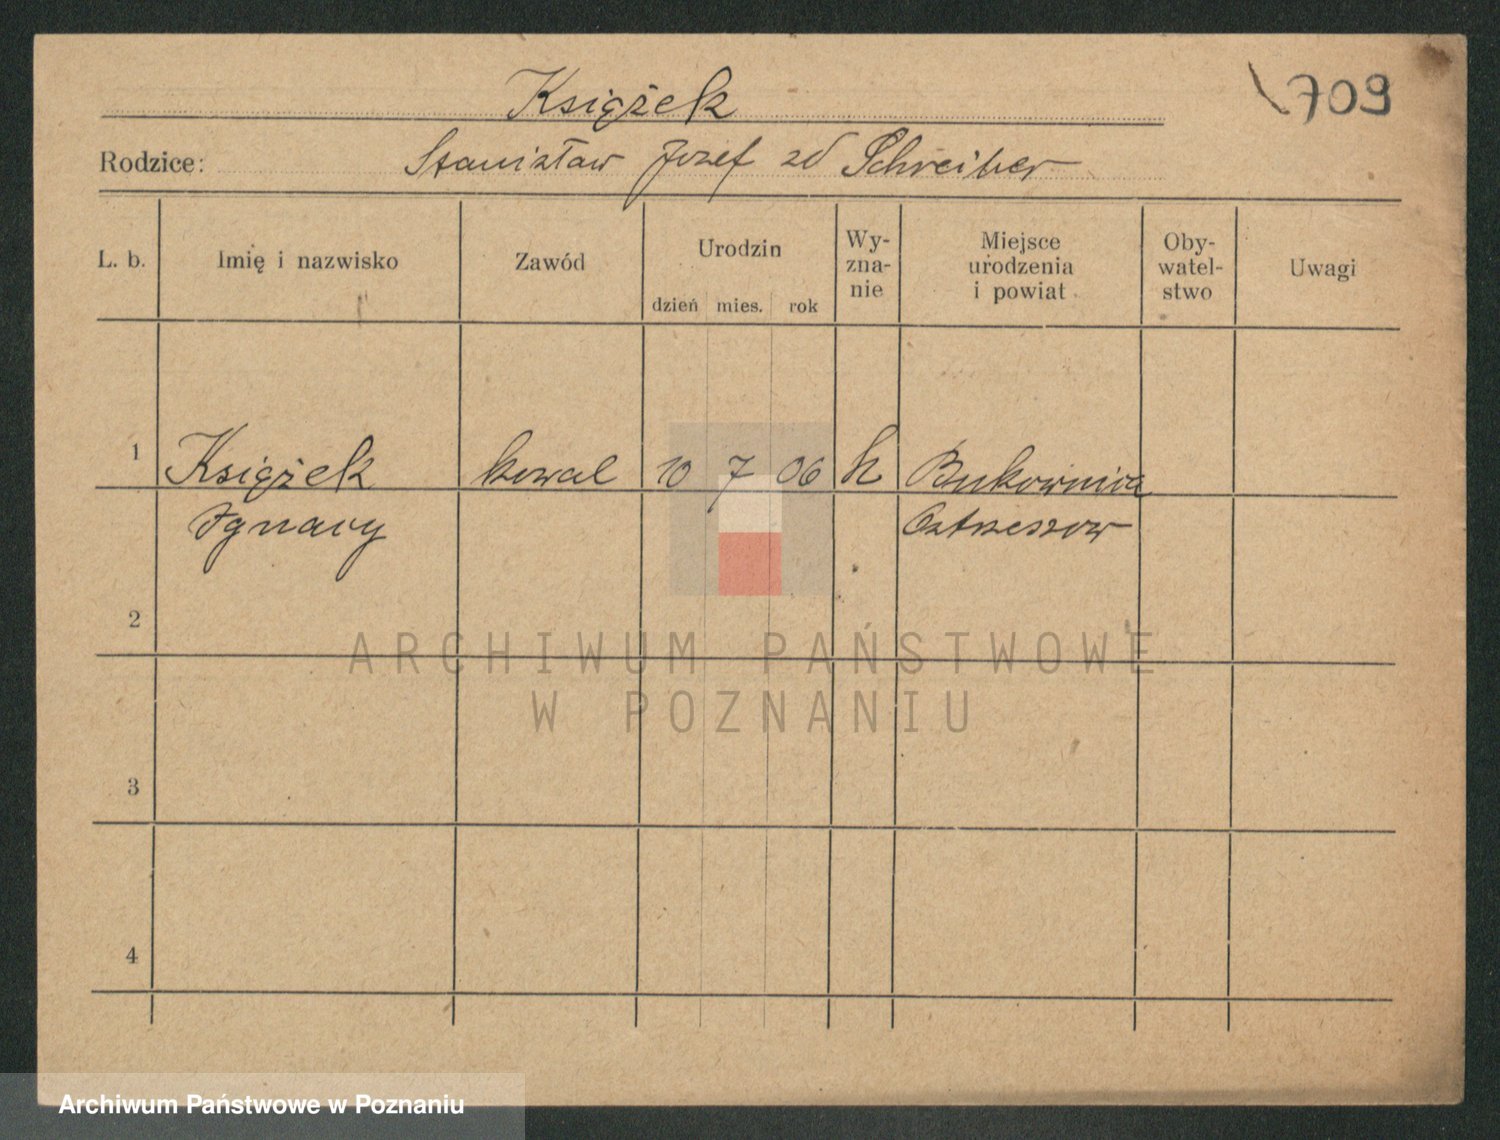 Książek
709
Rodzice: Stanisław Józef zd Schreiber
L. b. Imię i nazwisko Zawód Urodzin Wy-zna-nie Miejsce urodzenia i powiat Oby-watel-stwo Uwagi
dzień mies. rok
1 Książek kowal 10 7 06 k Bukownica
Ignacy Ostrzeszow
2
3
4
ARCHIWUM PAŃSTWOWE
W POZNANIU
Archiwum Państwowe w Poznaniu